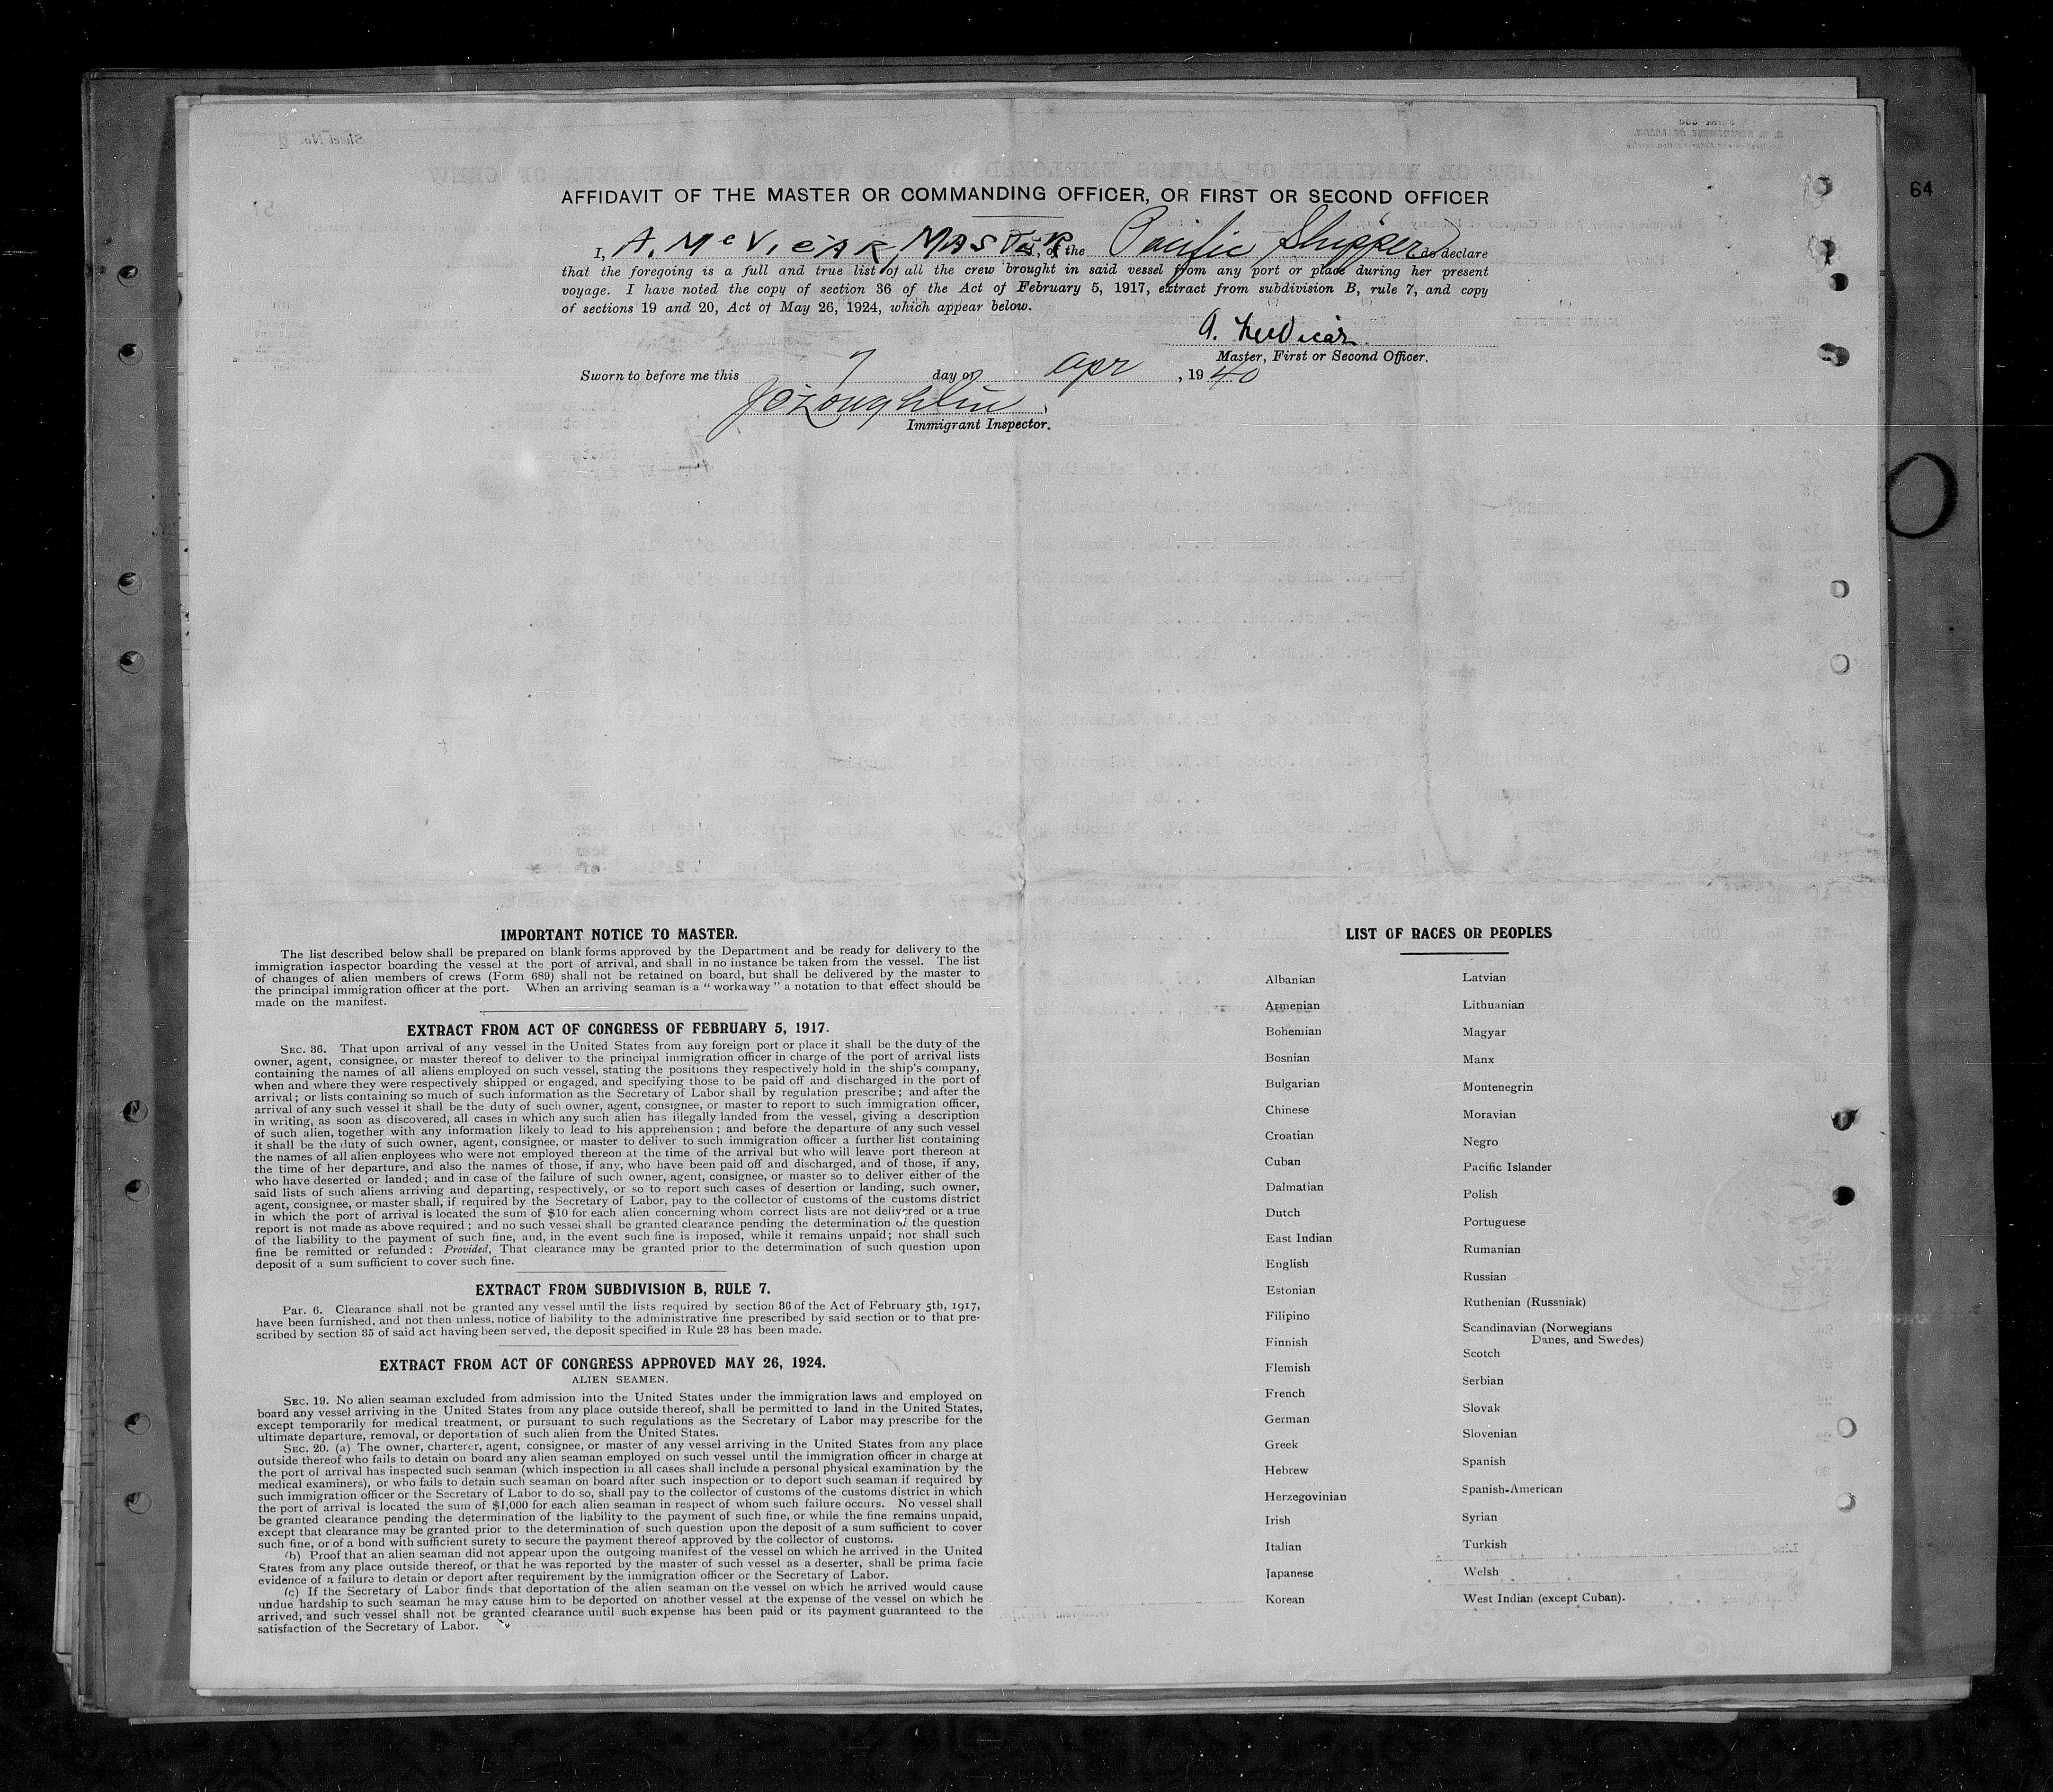 64
AFFIDAVIT OF THE MASTER OR COMMANDING OFFICER, OR FIRST OR SECOND OFFICER
I, A. McVICAR, MASTER, of the Pacific Shipper do declare
that the foregoing is a full and true list of all the crew brought in said vessel from any port or place during her present
voyage. I have noted the copy of section 36 of the Act of February 5, 1917, extract from subdivision B, rule 7, and copy
of sections 19 and 20, Act of May 26, 1924, which appear below.
A. McVicar
Master, First or Second Officer.
Sworn to before me this 7 day of Apr, 1940
J O'Loughlin
Immigrant Inspector.
IMPORTANT NOTICE TO MASTER.
The list described below shall be prepared on blank forms approved by the Department and be ready for delivery to the
immigration inspector boarding the vessel at the port of arrival, and shall in no instance be taken from the vessel. The list
of changes of alien members of crews (Form 689) shall not be retained on board, but shall be delivered by the master to
the principal immigration officer at the port. When an arriving seaman is a "workaway" a notation to that effect should be
made on the manifest.
EXTRACT FROM ACT OF CONGRESS OF FEBRUARY 5, 1917.
SEC. 36. That upon arrival of any vessel in the United States from any foreign port or place it shall be the duty of the
owner, agent, consignee, or master thereof to deliver to the principal immigration officer in charge of the port of arrival lists
containing the names of all aliens employed on such vessel, stating the positions they respectively hold in the ship's company,
when and where they were respectively shipped or engaged, and specifying those to be paid off and discharged in the port of
arrival; or lists containing so much of such information as the Secretary of Labor shall by regulation prescribe; and after the
arrival of any such vessel it shall be the duty of such owner, agent, consignee, or master to report to such immigration officer,
in writing, as soon as discovered, all cases in which any such alien has illegally landed from the vessel, giving a description
of such alien, together with any information likely to lead to his apprehension; and before the departure of any such vessel
it shall be the duty of such owner, agent, consignee, or master to deliver to such immigration officer a further list containing
the names of all alien enployees who were not employed thereon at the time of the arrival but who will leave port thereon at
the time of her departure, and also the names of those, if any, who have been paid off and discharged, and of those, if any,
who have deserted or landed; and in case of the failure of such owner, agent, consignee, or master so to deliver either of the
said lists of such aliens arriving and departing, respectively, or so to report such cases of desertion or landing, such owner,
agent, consignee, or master shall, if required by the Secretary of Labor, pay to the collector of customs of the customs district
in which the port of arrival is located the sum of $10 for each alien concerning whom correct lists are not delivered or a true
report is not made as above required; and no such vessel shall be granted clearance pending the determination of the question
of the liability to the payment of such fine, and, in the event such fine is imposed, while it remains unpaid; nor shall such
fine be remitted or refunded: Provided, That clearance may be granted prior to the determination of such question upon
deposit of a sum sufficient to cover such fine.
EXTRACT FROM SUBDIVISION B, RULE 7.
PAR. 6. Clearance shall not be granted any vessel until the lists required by section 36 of the Act of February 5th, 1917,
have been furnished, and not then unless, notice of liability to the administrative fine prescribed by said section or to that pre-
scribed by section 35 of said act having been served, the deposit specified in Rule 23 has been made.
EXTRACT FROM ACT OF CONGRESS APPROVED MAY 26, 1924.
ALIEN SEAMEN.
SEC. 19. No alien seaman excluded from admission into the United States under the immigration laws and employed on
board any vessel arriving in the United States from any place outside thereof, shall be permitted to land in the United States,
except temporarily for medical treatment, or pursuant to such regulations as the Secretary of Labor may prescribe for the
ultimate departure, removal, or deportation of such alien from the United States.
SEC. 20. (a) The owner, charterer, agent, consignee, or master of any vessel arriving in the United States from any place
outside thereof who fails to detain on board any alien seaman employed on such vessel until the immigration officer in charge at
the port of arrival has inspected such seaman (which inspection in all cases shall include a personal physical examination by the
medical examiners), or who fails to detain such seaman on board after such inspection or to deport such seaman if required by
such immigration officer or the Secretary of Labor to do so, shall pay to the collector of customs of the customs district in which
the port of arrival is located the sum of $1,000 for each alien seaman in respect of whom such failure occurs. No vessel shall
be granted clearance pending the determination of the liability to the payment of such fine, or while the fine remains unpaid,
except that clearance may be granted prior to the determination of such question upon the deposit of a sum sufficient to cover
such fine, or of a bond with sufficient surety to secure the payment thereof approved by the collector of customs.
(b) Proof that an alien seaman did not appear upon the outgoing manifest of the vessel on which he arrived in the United
States from any place outside thereof, or that he was reported by the master of such vessel as a deserter, shall be prima facie
evidence of a failure to detain or deport after requirement by the immigration officer or the Secretary of Labor.
(c) If the Secretary of Labor finds that deportation of the alien seaman on the vessel on which he arrived would cause
undue hardship to such seaman he may cause him to be deported on another vessel at the expense of the vessel on which he
arrived, and such vessel shall not be granted clearance until such expense has been paid or its payment guaranteed to the
satisfaction of the Secretary of Labor.
LIST OF RACES OR PEOPLES
Albanian
Armenian
Bohemian
Bosnian
Bulgarian
Chinese
Croatian
Cuban
Dalmatian
Dutch
East Indian
English
Estonian
Filipino
Finnish
Flemish
French
German
Greek
Hebrew
Herzegovinian
Irish
Italian
Japanese
Korean
Latvian
Lithuanian
Magyar
Manx
Montenegrin
Moravian
Negro
Pacific Islander
Polish
Portuguese
Rumanian
Russian
Ruthenian (Russniak)
Scandinavian (Norwegians
Danes, and Swedes)
Scotch
Serbian
Slovak
Slovenian
Spanish
Spanish-American
Syrian
Turkish
Welsh
West Indian (except Cuban).